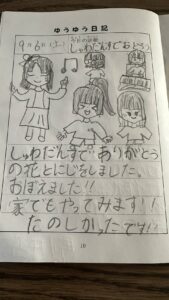 ゆうゆう日記
9月6日(土)
今日の活動
しゅわだんすでおどろう
しゅわだんすで ありがとう
の花とにじをしました。
おぼえました!!
家でもやってみます!!
たのしかったです!!
10